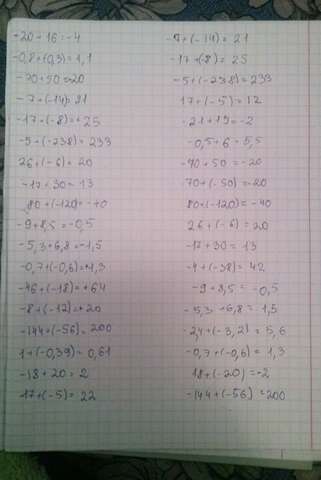 -20+16=-4
-0,8+(0,3)=1,1
-70+50=20
-7+(-14)=21
-17+(-8)=+25
-5+(-238)=233
26+(-6)=20
-17+30=13
80+(-120)=-40
-9+8,5=-0,5
-5,3+6,8=-1,5
-0,7+(-0,6)=+1,3
-46+(-18)=+64
-8+(-12)=+20
-144+(-56)=200
1+(-0,39)=0,61
-18+20=2
17+(-5)=22
-7+(-14)=21
-17+(-8)=25
-5+(-238)=233
17+(-5)=12
-21+19=-2
-0,5+6=5,5
-70+50=-20
70+(-50)=20
80+(-120)=-40
26+(-6)=20
-17+30=13
-4+(-38)=42
-9+8,5=-0,5
-5,3+6,8=1,5
-2,4+(-3,2)=5,6
-0,7+(-0,6)=1,3
18+(-20)=-2
-144+(-56)=200